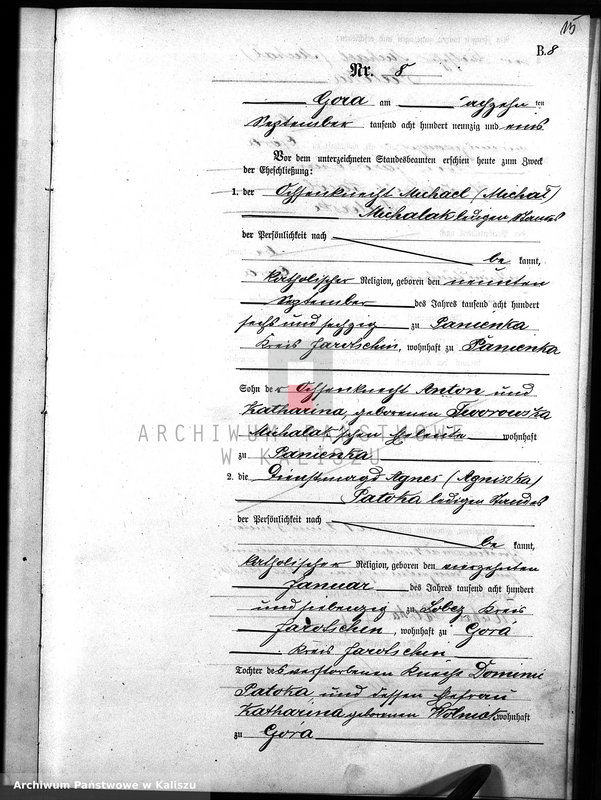 15
B. 8
Nr. 8
Gora am achzehn ten
September tausend acht hundert neunzig und eins
Vor dem unterzeichneten Standesbeamten erschien heute zum Zweck
der Eheschließung:
1. der Ochsenknecht Michael (Michał)
Michalak ledigen Standes
der Persönlichkeit nach
be kannt,
katholischer Religion, geboren den neunten
September des Jahres tausend acht hundert
sechs und sechzig zu Panienka
Kreis Jarotschin, wohnhaft zu Panienka
Sohn der Ochsenknecht Anton und
Katharina, geborenen Tworowska
Michalak'schen Eheleute wohnhaft
zu Panienka
2. die Dienstmagd Agnes (Agniszka)
Patoka ledigen Standes
der Persönlichkeit nach
be kannt,
katholischer Religion, geboren den vierzehnten
Januar des Jahres tausend acht hundert
und siebenzig zu Kreis
Jarotschin, wohnhaft zu Góra
Kreis Jarotschin
Tochter des verstorbenen Knecht Dominic
Patoka und dessen Ehefrau
Katharina geborenen wohnhaft
zu Góra
ARCHIWUM PAŃSTWOWE
W KALISZU
Archiwum Państwowe w Kaliszu